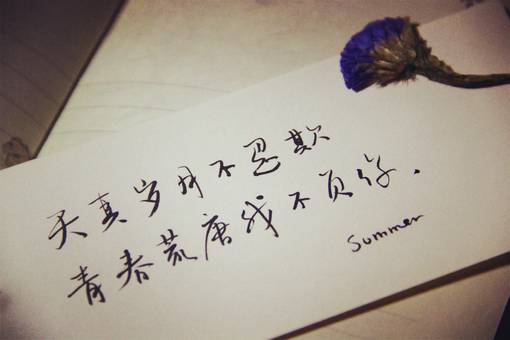 天真岁月不忍欺
青春荒唐我不负你.
Summer